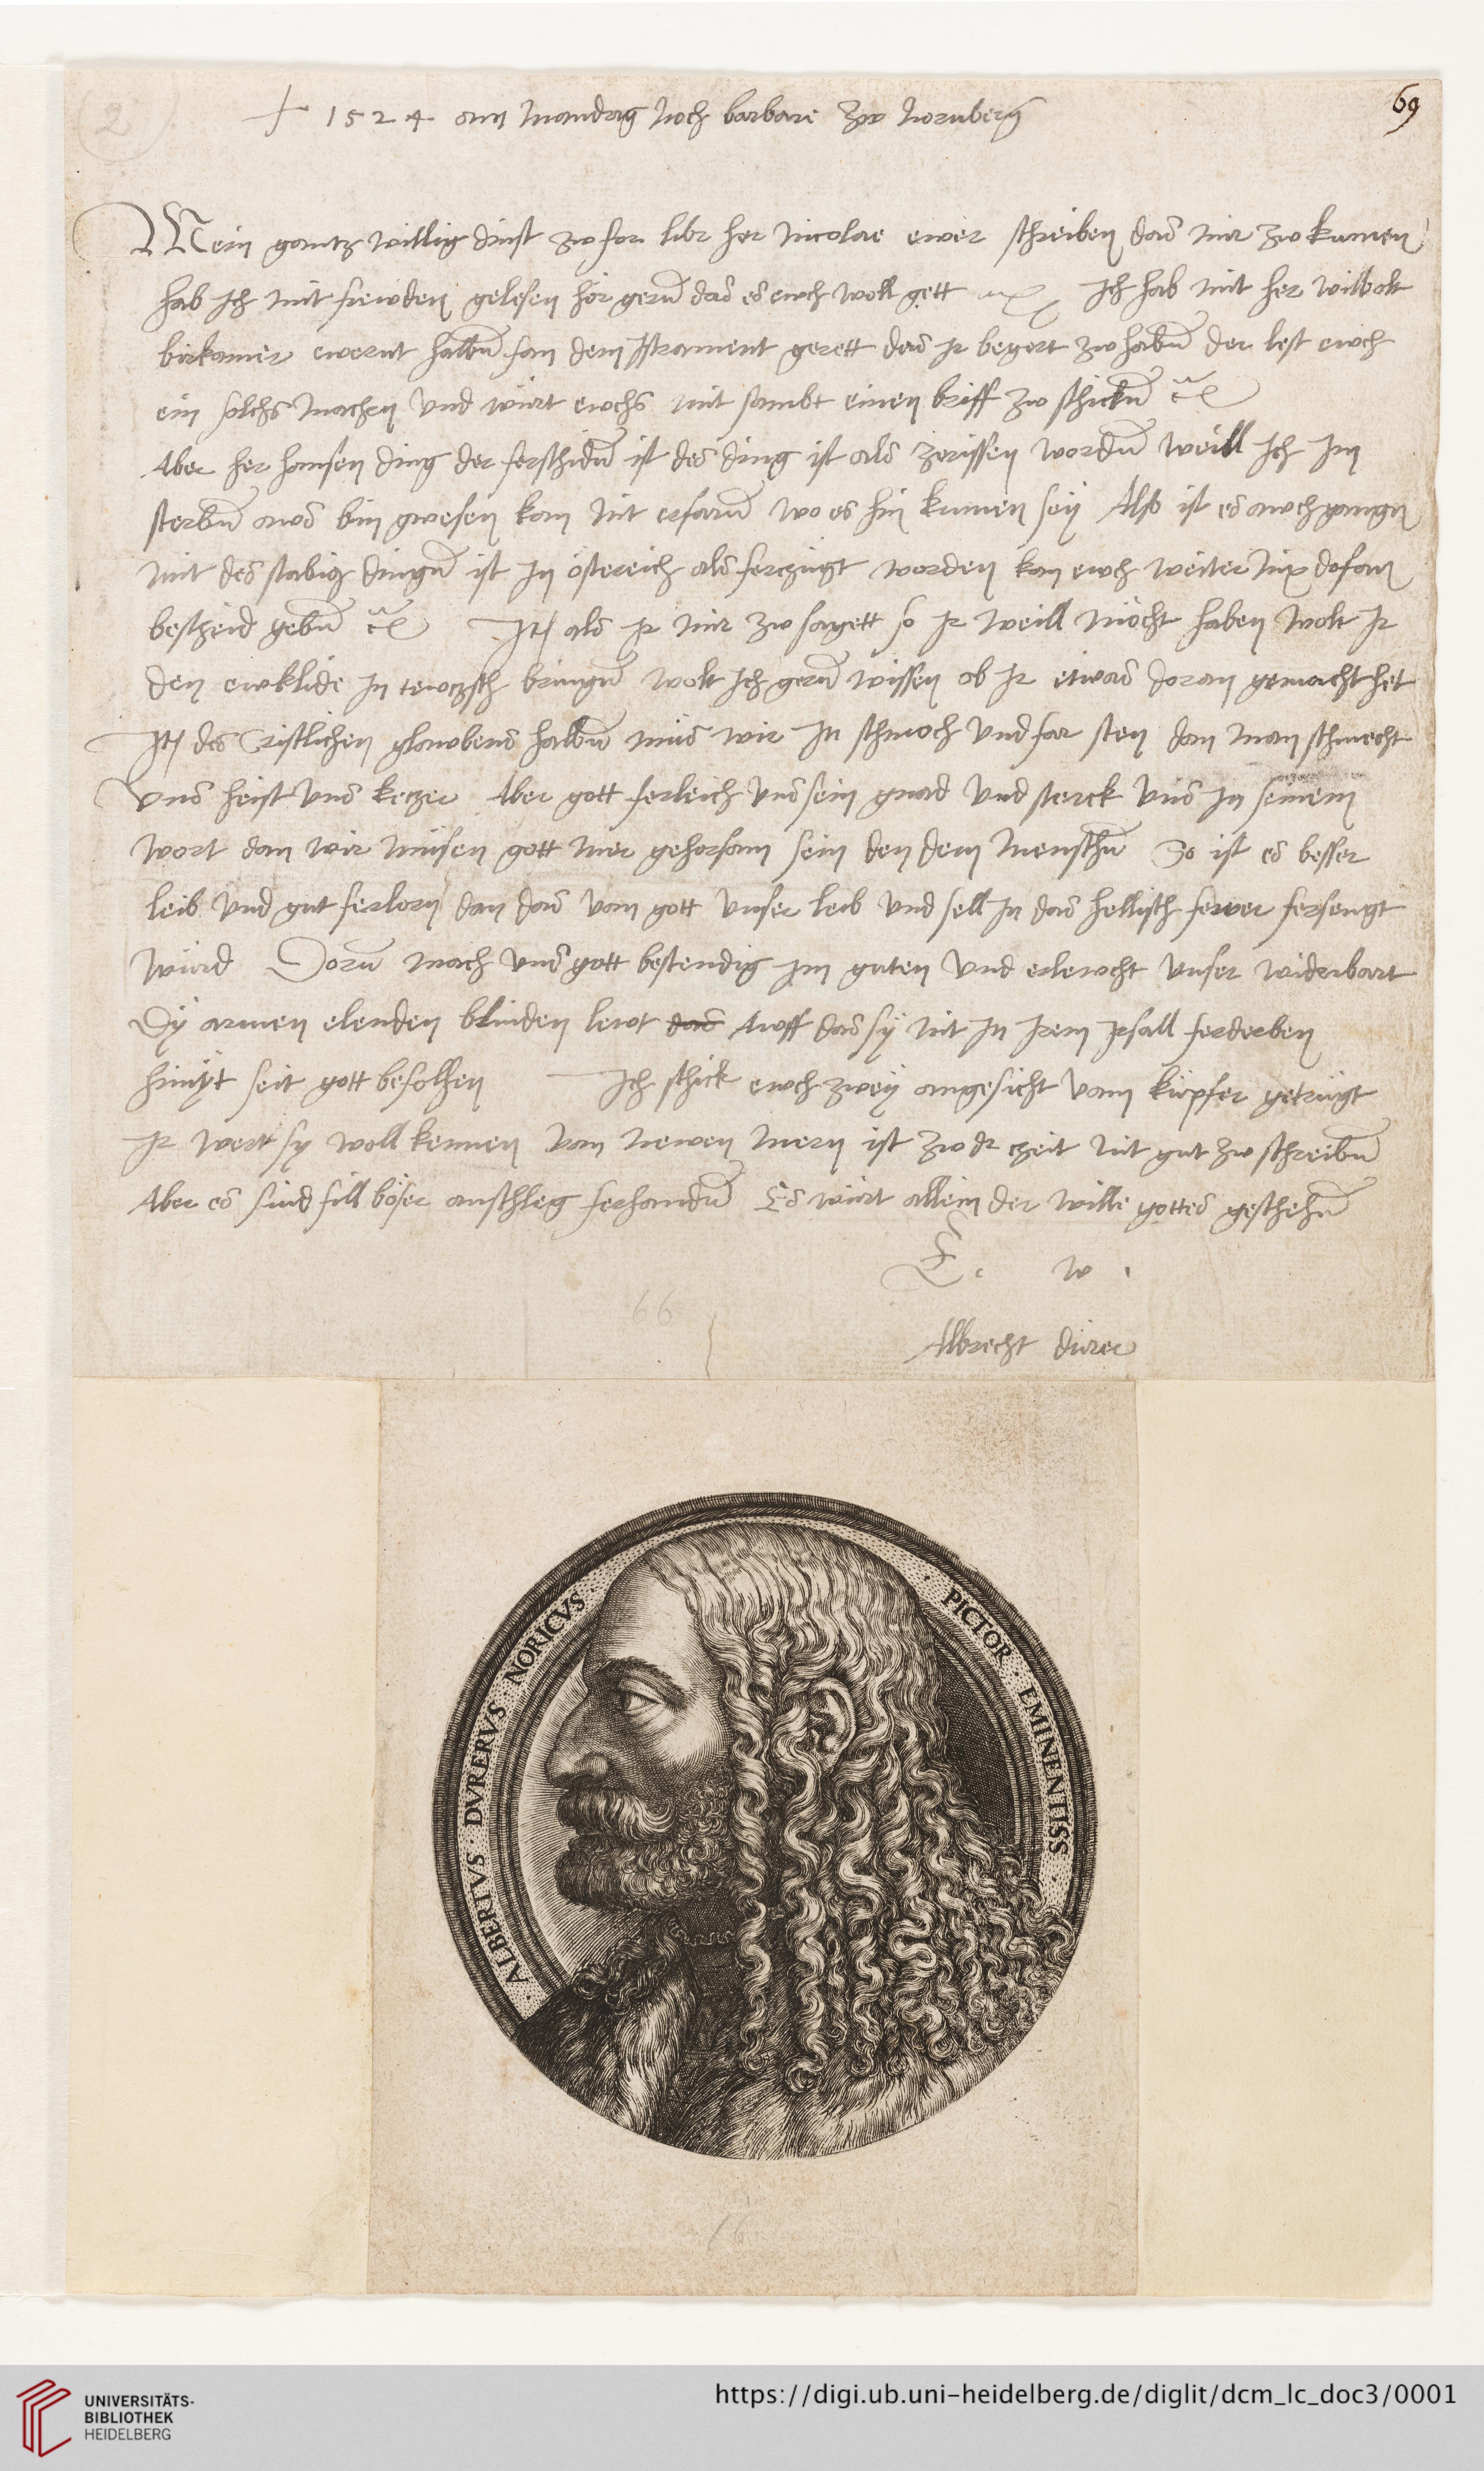 2
69
1524 am mandag noch barbare zw nornberg
Mein gantz willig dinst zw for libr her nicolae ewer schreiben das mir zw kumen
hab Ich mit frewden gelesen hör gern das es ewch woll gett Ich hab mit her wilbolt
birkamer ewernt halben fan dem Istrament gerett das Ir begert zw haben der lest ewch
ein solchs machen vnd würt ewchs mit sambt einen briff zw schicken etc
Aber her hansen ding der ferschiden ist des ding ist als zerissen worden weill Ich Im
sterben aws bin gwesen kan nit erfaren wo es hin kumen sey Also ist es awch gangen
mit des stabiz dingen ist In östereich als ferczugt worden kan ewch weiter nix dofan
bescheid geben etc Itm als Ir mir zw sagett so Ir weill möcht haben wolt Ir
den ewklide In tewczsch bringen wolt Ich gern wissen ob Ir etwas doran gemacht het
Itm des Cristlichen glawbens halben müs wir In schmoch vnd far sten dan man schmecht
vns heist vns keczer Aber gott ferleich vns sein gnad vnd sterck vns In seinem
wort dan wir müsen gott mer gehorsam sein den dem menschen So ist es besser
leib vnd gut ferlorn dan das van gott vnser leib vnd sell In das hellisch fewer fersengt
würd Dorum mach vns gott bestendig Im guten vnd erlewcht vnser widerbart
Dy armen elenden blinden lewt das Awff das sy nit In Irem Irsall ferderben
himyt seit gott befolhen Ich schick ewch zwey angesicht vam küpfer getrügt
Ir wert sy woll kennen van newen mern ist zw dr czeit nit gut zw schreiben
Aber es sind fill böser anschleg ferhanden Es würt allein der wille gottes geschehen
E. w.
Albrecht dürer
66
ALBERTVS · DVRERVS NORICVS · · PICTOR EMINENTISS ·
16
UNIVERSITÄTS-
BIBLIOTHEK
HEIDELBERG
https://digi.ub.uni-heidelberg.de/diglit/dcm_lc_doc3/0001